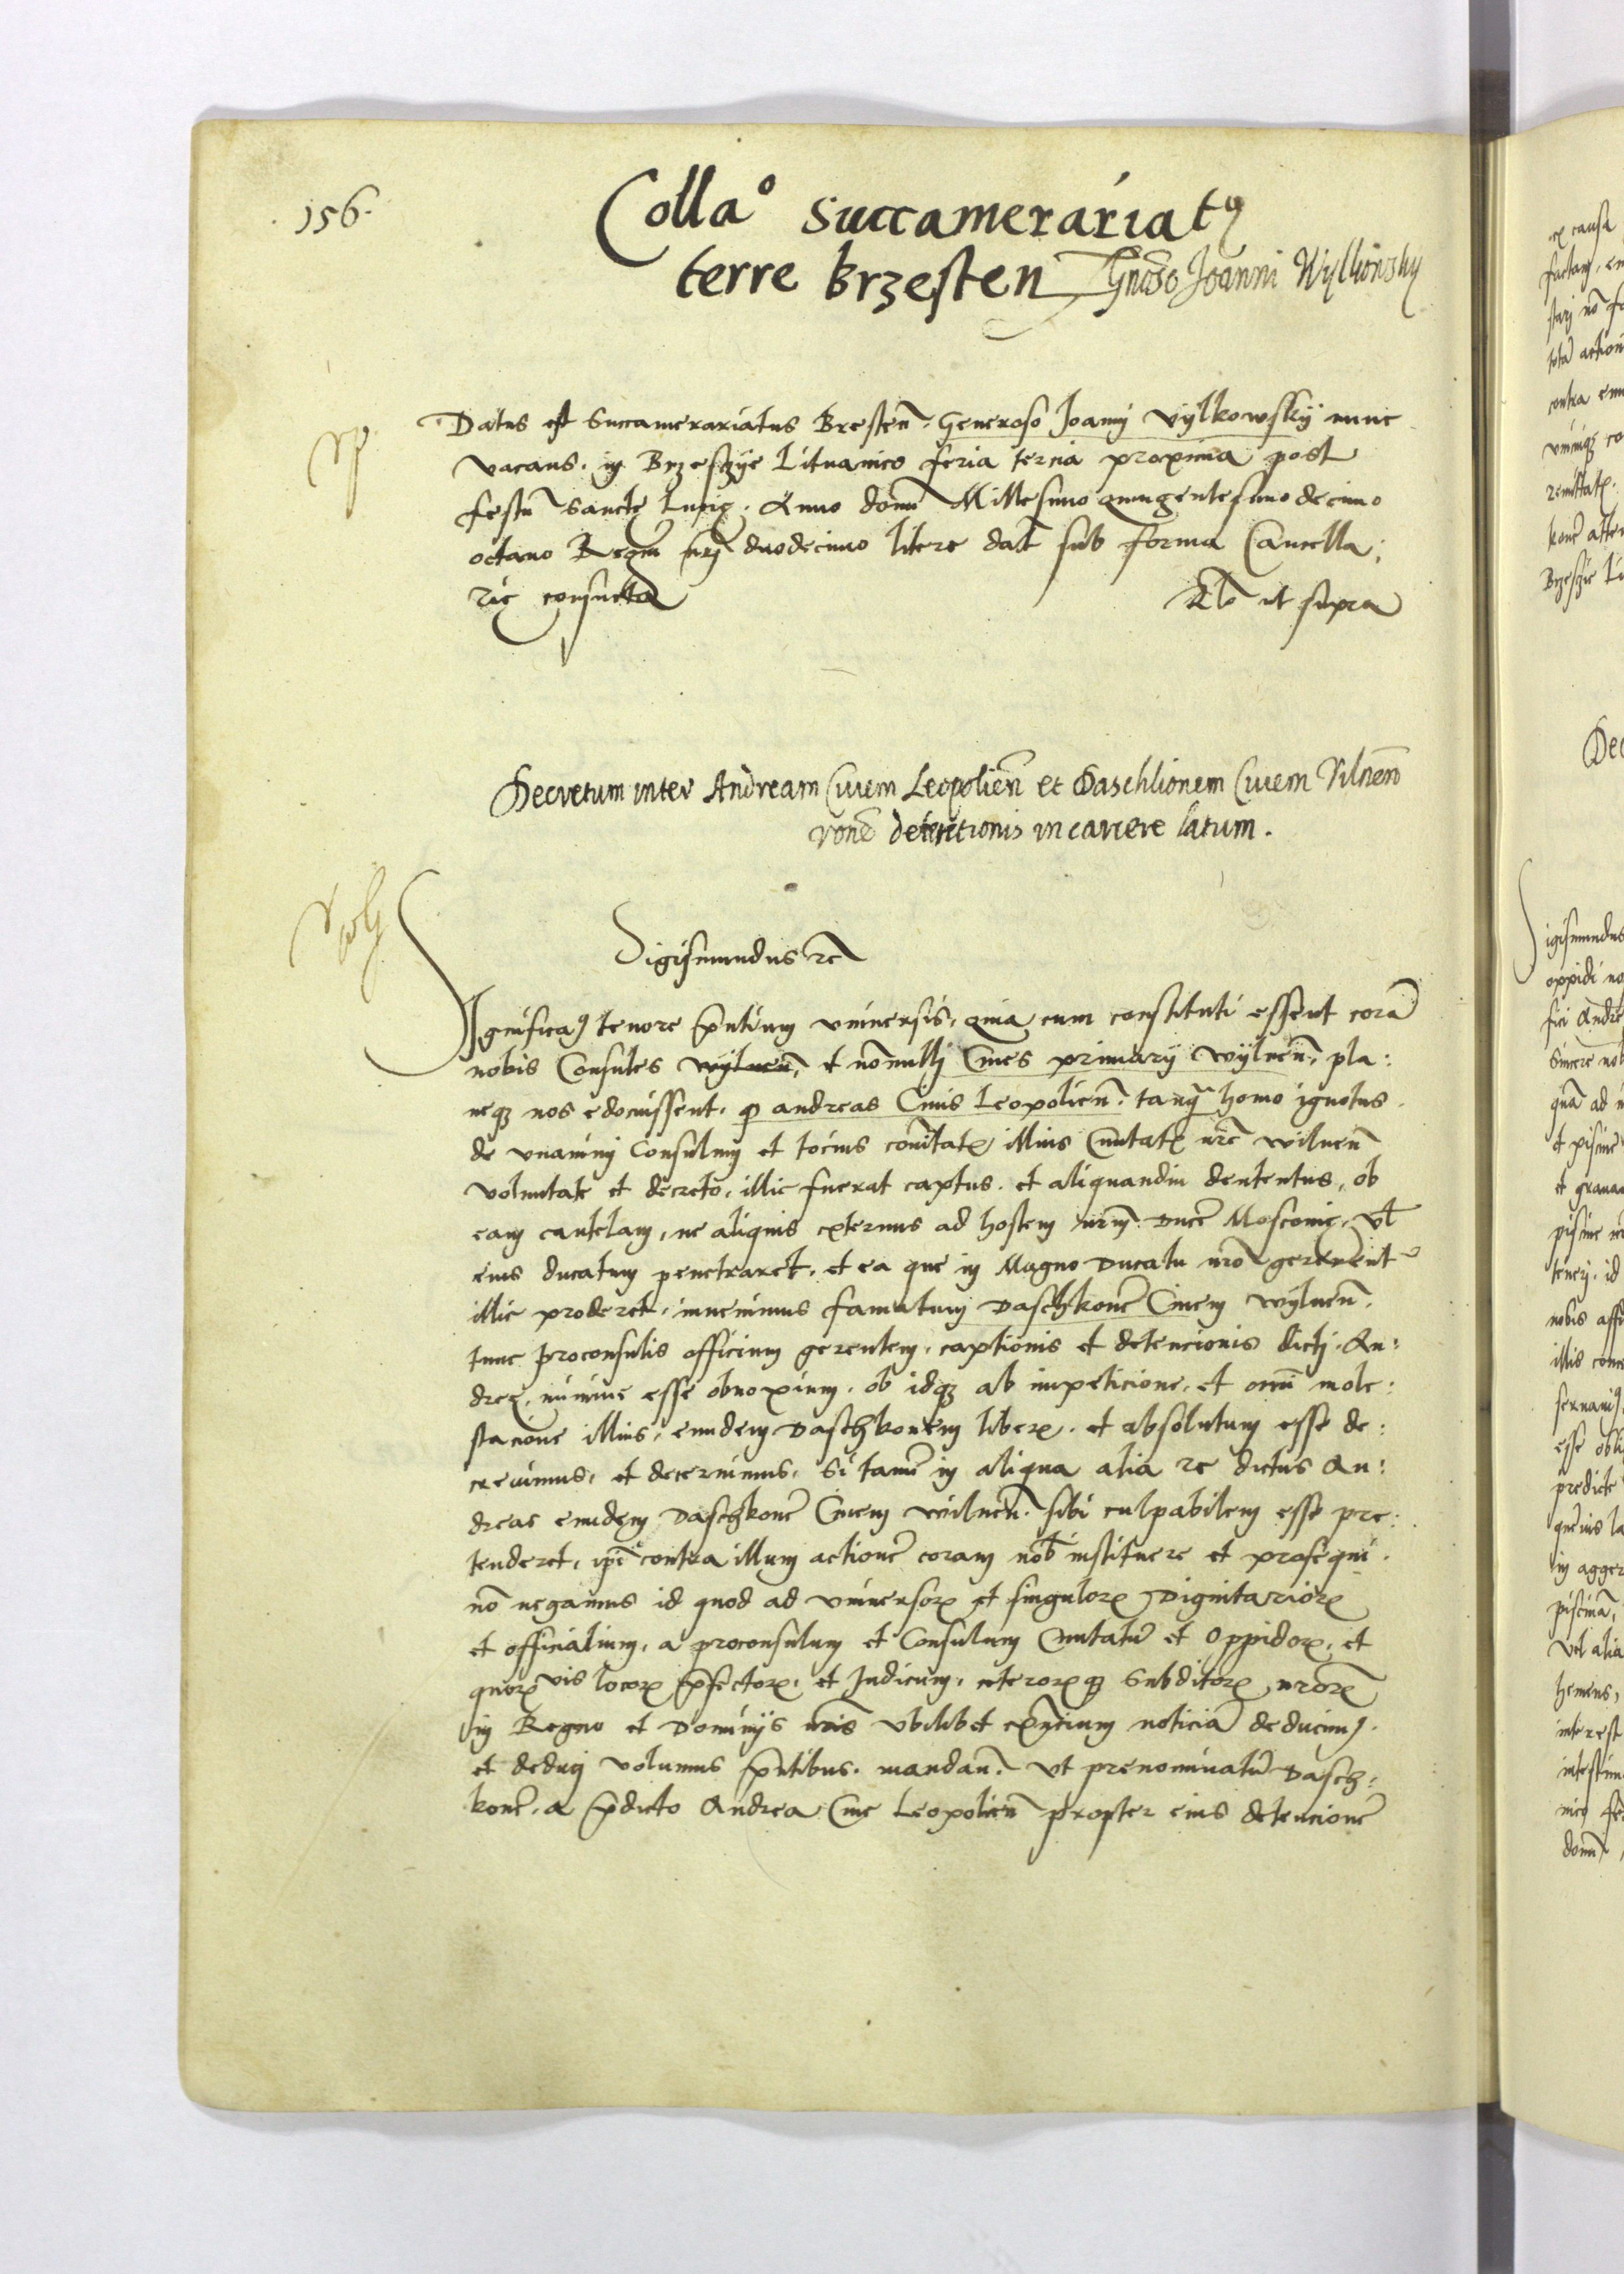 156.
Collaº succamerariatꝯ
terre Brzesten Gnoso Joanni Wylkowsky
Datus est Succamerariatus Bresteñ. Generoso Joanni Vylkowskÿ nunc
vacans. in Brzesczÿe Lituanico feria tercia proxima post
festũ Sancte Lucię. Anno domi Millesimo quingentesimo decimo
octauo Regni nrj duodecimo litere dat sub forma Cancella:
rię consueta
Rlō ut supra
Decretum inter Andream Ciuem Leopolieñ et Daschkonem Ciuem Vilneñ
rone detentionis in carcere latum.
Sigismundus rc̃
Significamꝯ tenore p̃ntium vniuersis, quia cum constituti essent corã
nobis Consules wylneñ, et nonnullj Ciues primarÿ wÿlneñ, pla:
neqꝫ nos edocuissent, ꝙ andreas Ciuis Leopolieñ. tanq̃ homo ignotus
de vnanimj Consulum et tocius com̃itatꝭ illius Ciuitatꝭ nrẽ wilneñ
voluntate et decreto, illic fuerat captus. et aliquandiu dententus, ob
eam cautelam, ne aliquis externus ad hostem nrm̃ Ducẽ Moscouie, vl̃
eius ducatum penetraret, et ea que in Magno Ducatu nrõ gererent
illic proderet, inuenimus famatum Daschkonẽ Ciuem wÿlneñ.
tunc proconsulis officium gerentem, captionis et detencionis dictj. An:
dreę, minime esse obnoxium, ob idqꝫ ab impeticione, et omni mole:
stacione illius, eundem Daschkonem liberꝭ. et absolutum esse de:
creuimus, et decernimus, Si tamẽ in aliqua alia re dictus An:
dreas eundem Daschkonẽ Ciuem wilneñ. sibi culpabilem esse pre:
tenderet, ip̃e contra illum actionẽ coram nob̃ instituere et prosequi.
nõ negamus id quod ad vniuersoꝝ et singuloꝝ Dignitarioꝝ
et officialium, a proconsulum et Consulum Ciuitatũ et Oppidoꝝ, et
quoꝝvis locoꝝ p̃fectoꝝ, et Judicum, ceteroꝝqꝫ Subditoꝝ nroꝝ
in Regno et Dominÿs nris vbilibet exñcium noticiã deducimꝯ.
et deducj volumus p̃ntibus. mandañ. Vt prenominatũ Dasch:
konẽ, a p̃dicto Andrea Ciue Leopolieñ propter eius detencionẽ